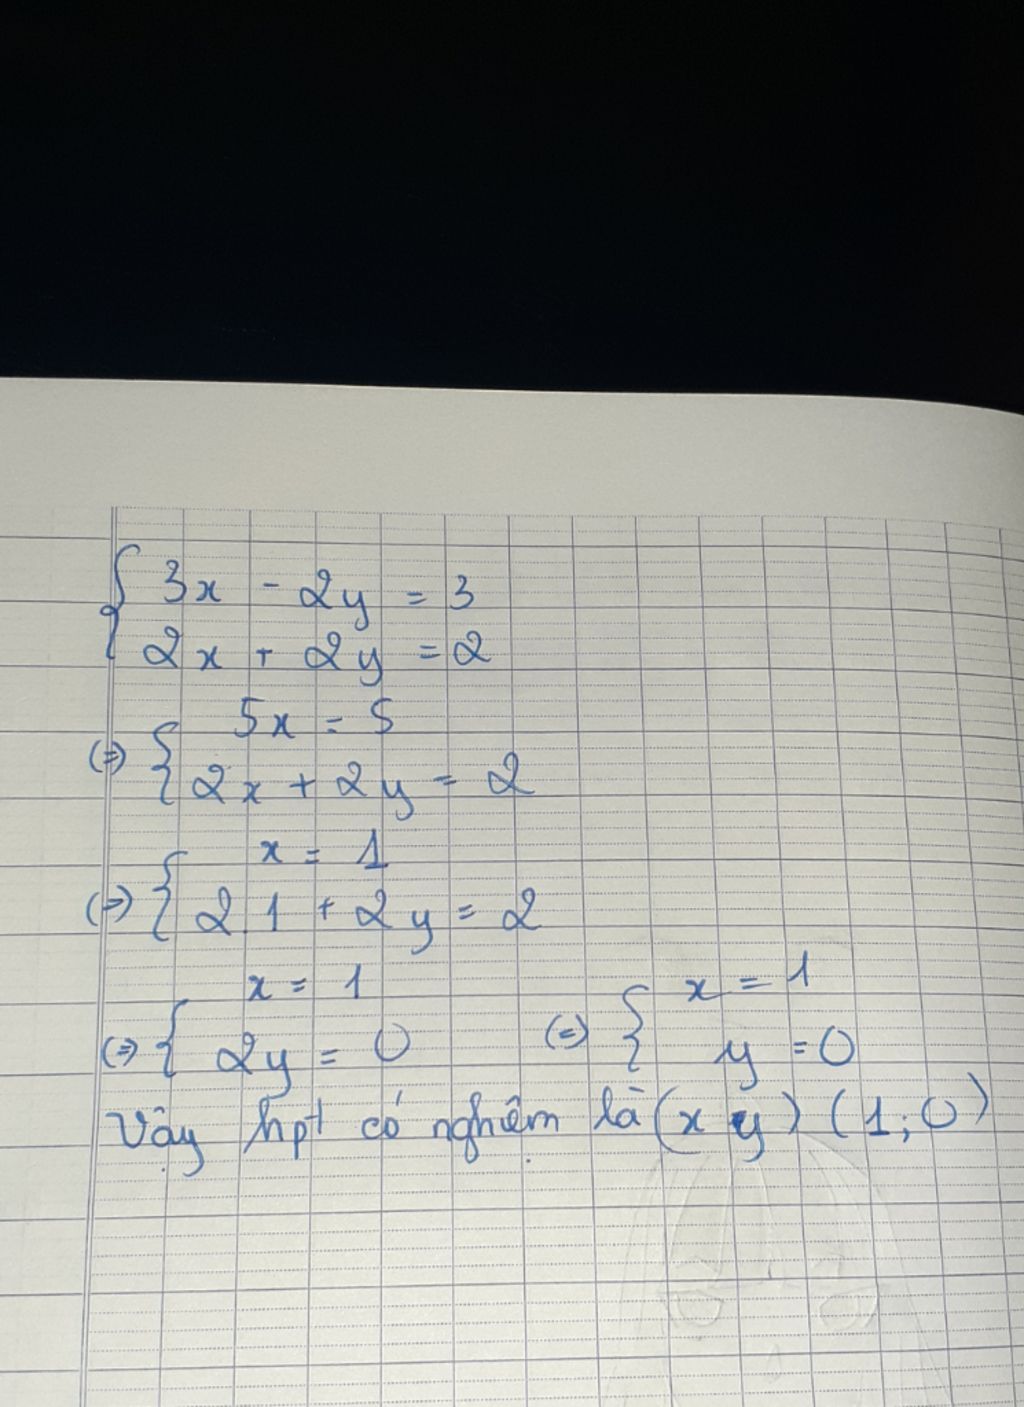 { 3x - 2y = 3
2x + 2y = 2
(=>) { 5x = 5
2x + 2y = 2
(=>) { x = 1
2 1 + 2y = 2
(=>) { x = 1 (=>) { x = 1
2y = 0 y = 0
Vậy hpt có nghiệm là (x y) (1; 0)